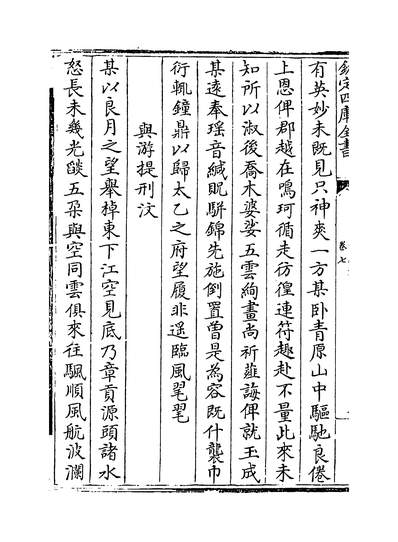 欽定四庫全書
卷七
有英妙未既見只神爽一方某卧青原山中驅馳良倦
上恩俾郡越在鳴珂循走彷徨連符趣赴不量此來未
知所以淑後喬木婆娑五雲絢畫尚祈薤誨俾就玉成
某遠奉瑶音緘貺駢錦先施倒置曽是為容既什襲巾
衍輒鐘鼎以歸太乙之府望履非遥臨風翟翟
與游提刑汶
某以良月之望舉棹東下江空見底乃章貢源頭諸水
怒長未幾光燄五朶與空同雲俱來往颿順風航波瀾